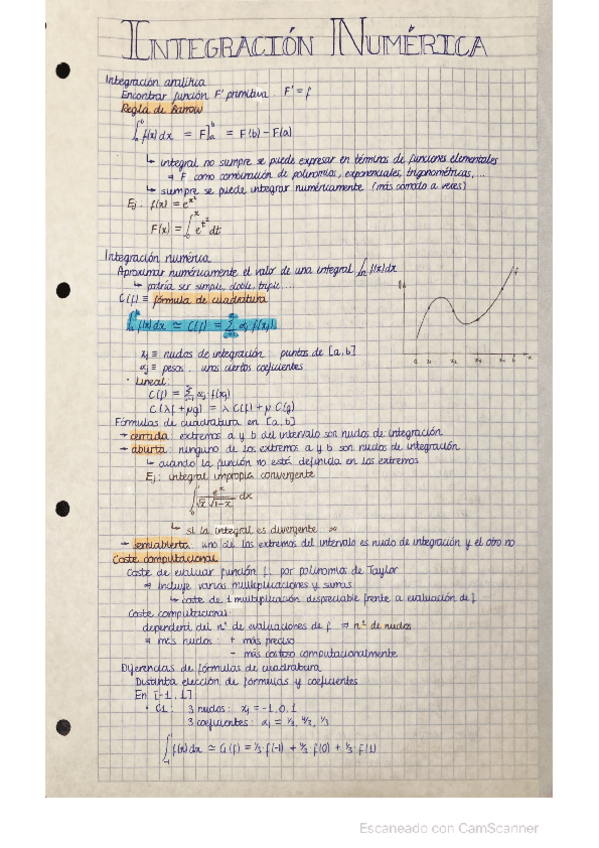 INTEGRACIÓN NUMÉRICA
Integración analítica
Encontrar función F' primitiva : F' = f
Regla de Barrow
∫ₐᵇ f(x) dx = F]ₐᵇ = F(b) - F(a)
↳ integral no siempre se puede expresar en términos de funciones elementales
⇒ F como combinación de polinomios, exponenciales, trigonométricas, ...
↳ siempre se puede integrar numéricamente (más cómodo a veces)
Ej: f(x) = e^x²
F(x) = ∫ˣ e^t² dt
Integración numérica
Aproximar numéricamente el valor de una integral ∫ f(x) dx
↳ podría ser simple, doble, triple, ...
C(f) ≡ fórmula de cuadratura
∫ f(x) dx ≃ C(f) = Σ αj f(xj)
xj ≡ nudos de integración : puntos de [a,b]
αj ≡ pesos : unos ciertos coeficientes
• Lineal:
C(f) = Σ αj · f(xj)
C(λf + μg) = λ C(f) + μ C(g)
Fórmulas de cuadratura en [a,b]
→ cerrada : extremos a y b del intervalo son nudos de integración
→ abierta : ninguno de los extremos a y b son nudos de integración
↳ cuando la función no está definida en los extremos
Ej: integral impropia convergente
∫ eˣ / √x √1-x dx
↳ si la integral es divergente ∞
→ semiabierta : uno de los extremos del intervalo es nudo de integración y el otro no
Coste computacional
Coste de evaluar función f : por polinomios de Taylor
⇒ Incluye varias multiplicaciones y sumas
↳ coste de 1 multiplicación despreciable frente a evaluación de f
Coste computacional:
dependerá del nº de evaluaciones de f ⇒ nº de nudos
⇒ más nudos : + más preciso
- más costoso computacionalmente
Diferencias de fórmulas de cuadratura
Distinta elección de fórmulas y coeficientes
En [-1, 1]
• C1: 3 nudos: xj = -1, 0, 1
3 coeficientes: αj = 1/3, 4/3, 1/3
∫ f(x) dx ≃ C1(f) = 1/3 · f(-1) + 4/3 · f(0) + 1/3 · f(1)
Escaneado con CamScanner